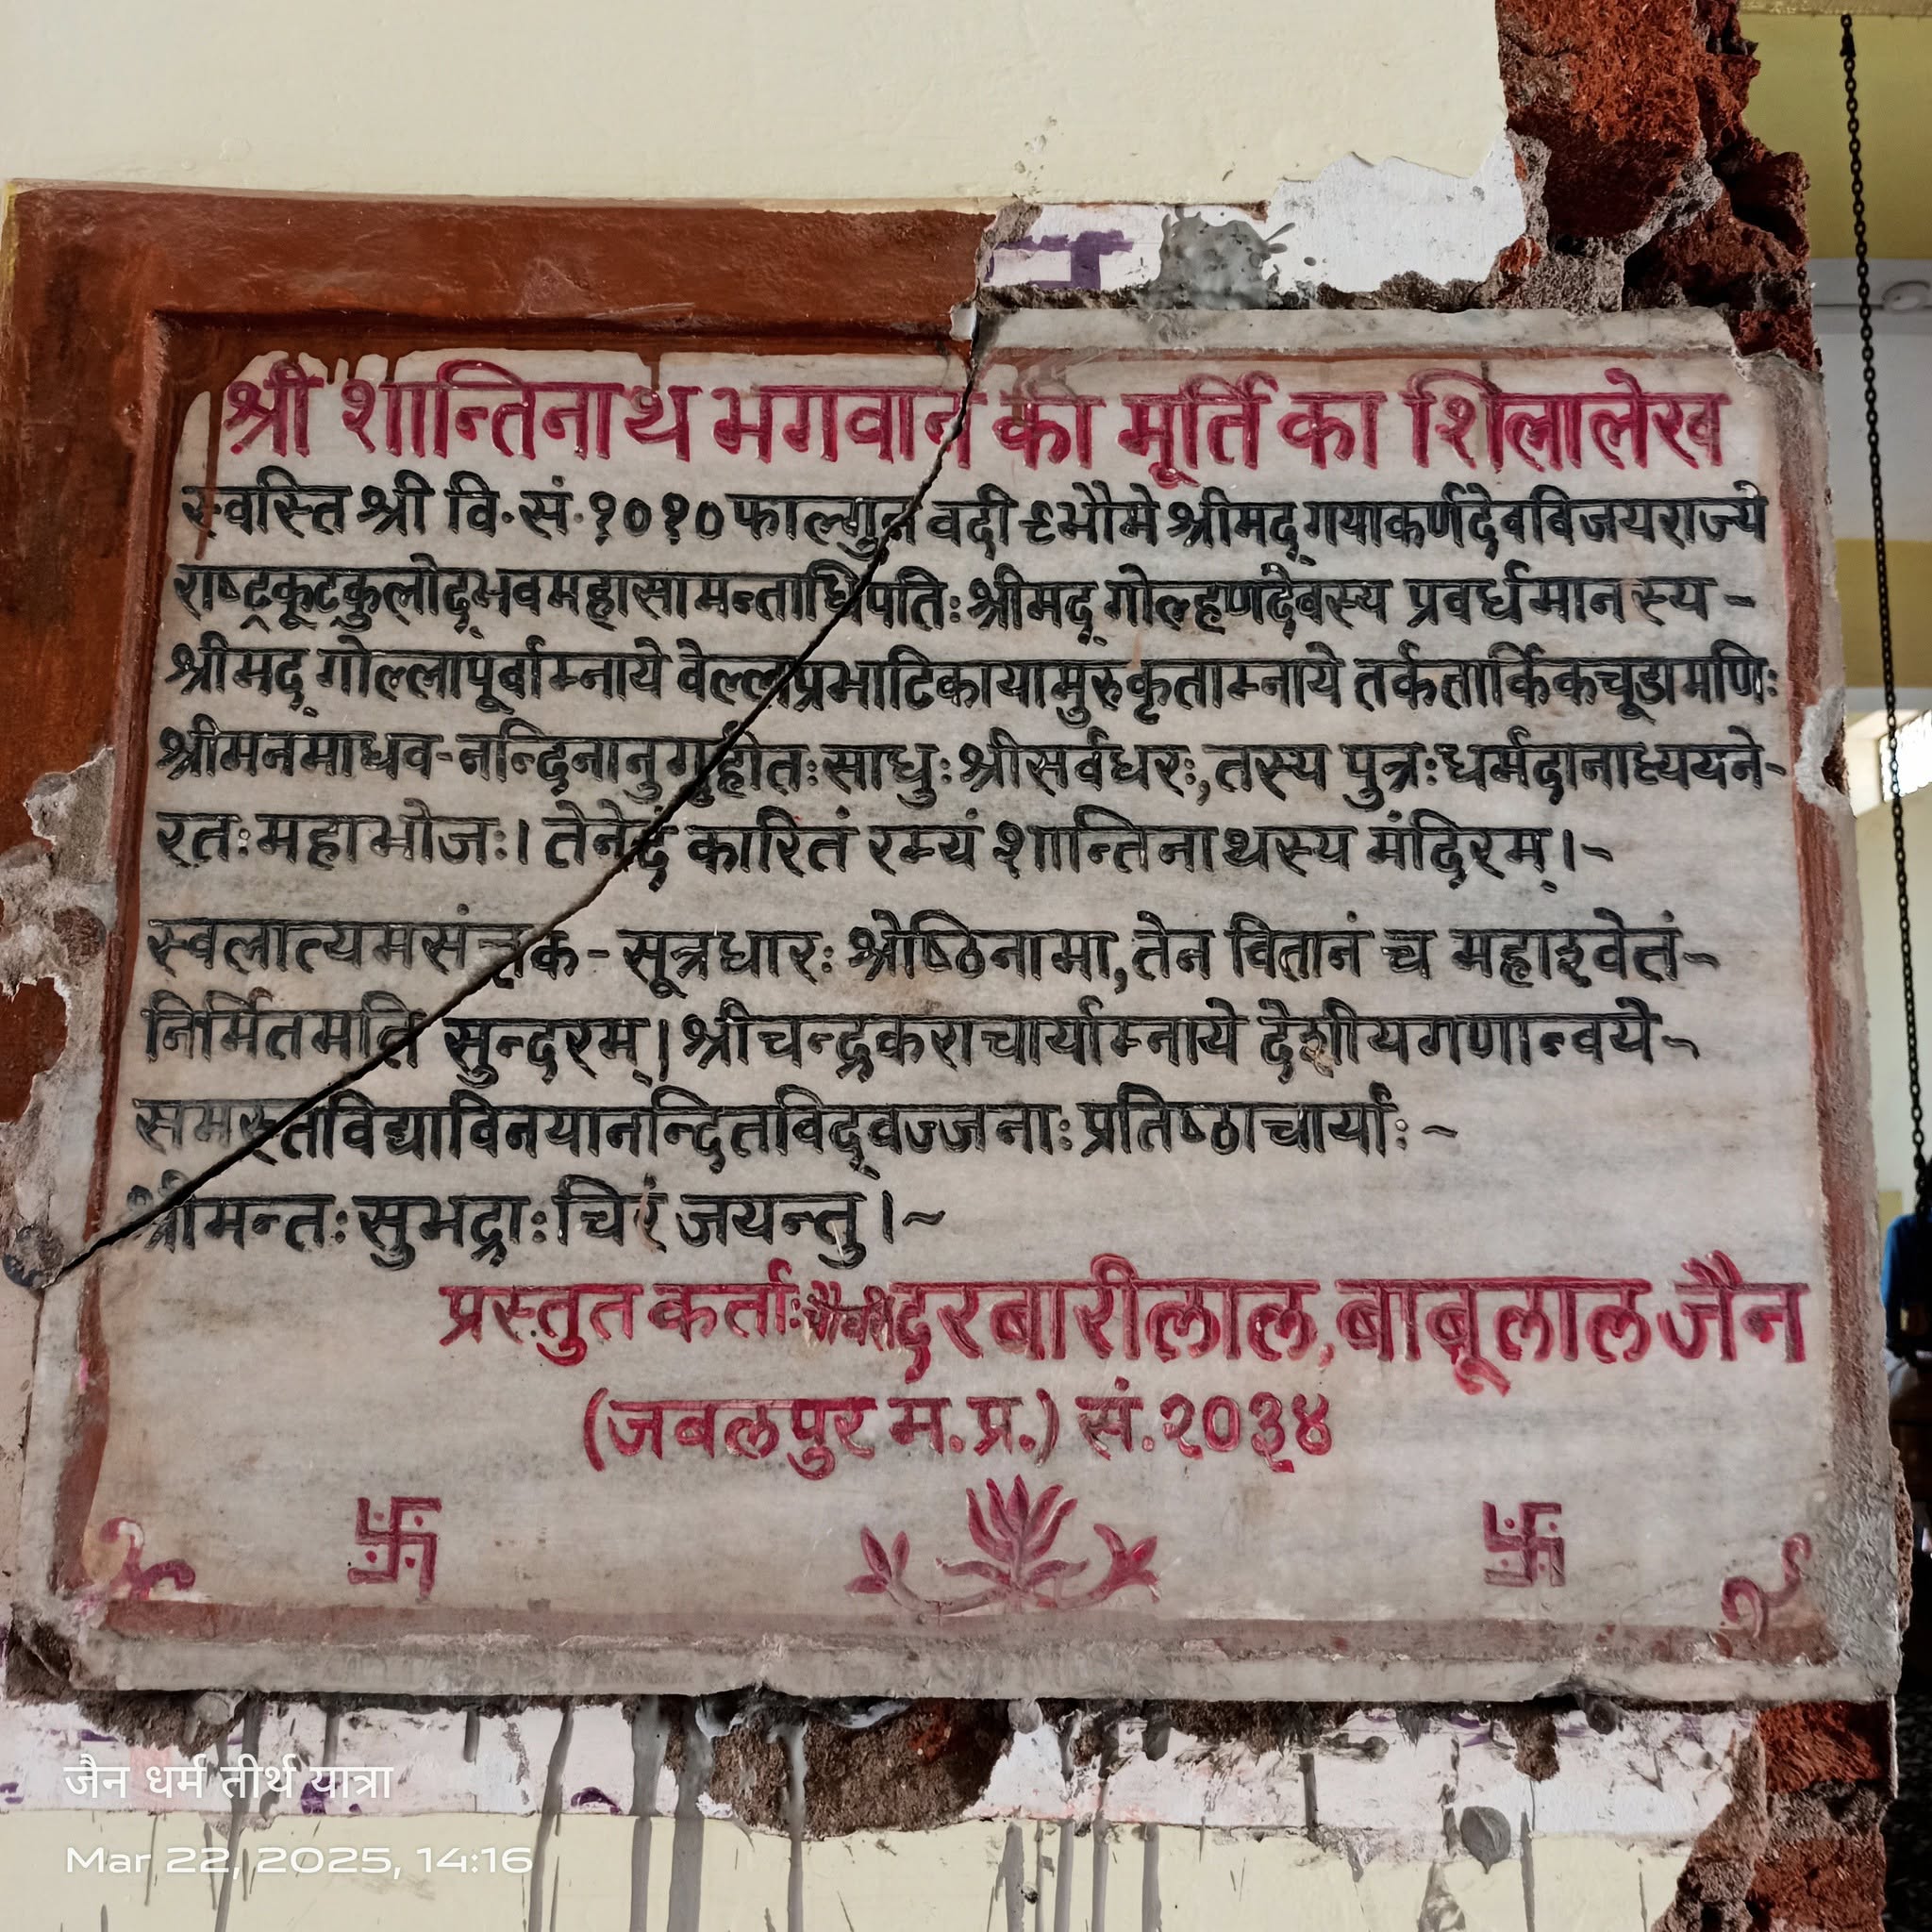 श्री शान्तिनाथ भगवान की मूर्ति का शिलालेख
स्वस्ति श्री वि.सं.१०१० फाल्गुन वदी ९भौमे श्रीमद् गयाकर्णदेवविजयराज्ये
राष्ट्रकूटकुलोद्भवमहासामन्ताधिपतिः श्रीमद् गोल्हणदेवस्य प्रवर्धमानस्य -
श्रीमद् गोल्लापूर्वाम्नाये वेल्लप्रभाटिकायामुरुकृताम्नाये तर्कतार्किकचूडामणिः
श्रीमनमाधव-नन्दिनानुगृहीतः साधुः श्रीसर्वधरः, तस्य पुत्रः धर्मदानाध्ययने-
रतः महाभोजः। तेनेदं कारितं रम्यं शान्तिनाथस्य मंदिरम्।~
स्वलात्यमसंज्ञक - सूत्रधारः श्रेष्ठिनामा, तेन वितानं च महाश्वेतं~
निर्मितमति सुन्दरम्। श्रीचन्द्रकराचार्याम्नाये देशीयगणान्वये~
समस्तविद्याविनयानन्दितविद्वज्जनाः प्रतिष्ठाचार्याः ~
श्रीमन्तः सुभद्राः चिरं जयन्तु।~
प्रस्तुत कर्ताः दरबारीलाल, बाबूलाल जैन
(जबलपुर म.प्र.) सं.२०३४
जैन धर्म तीर्थ यात्रा
Mar 22, 2025, 14:16